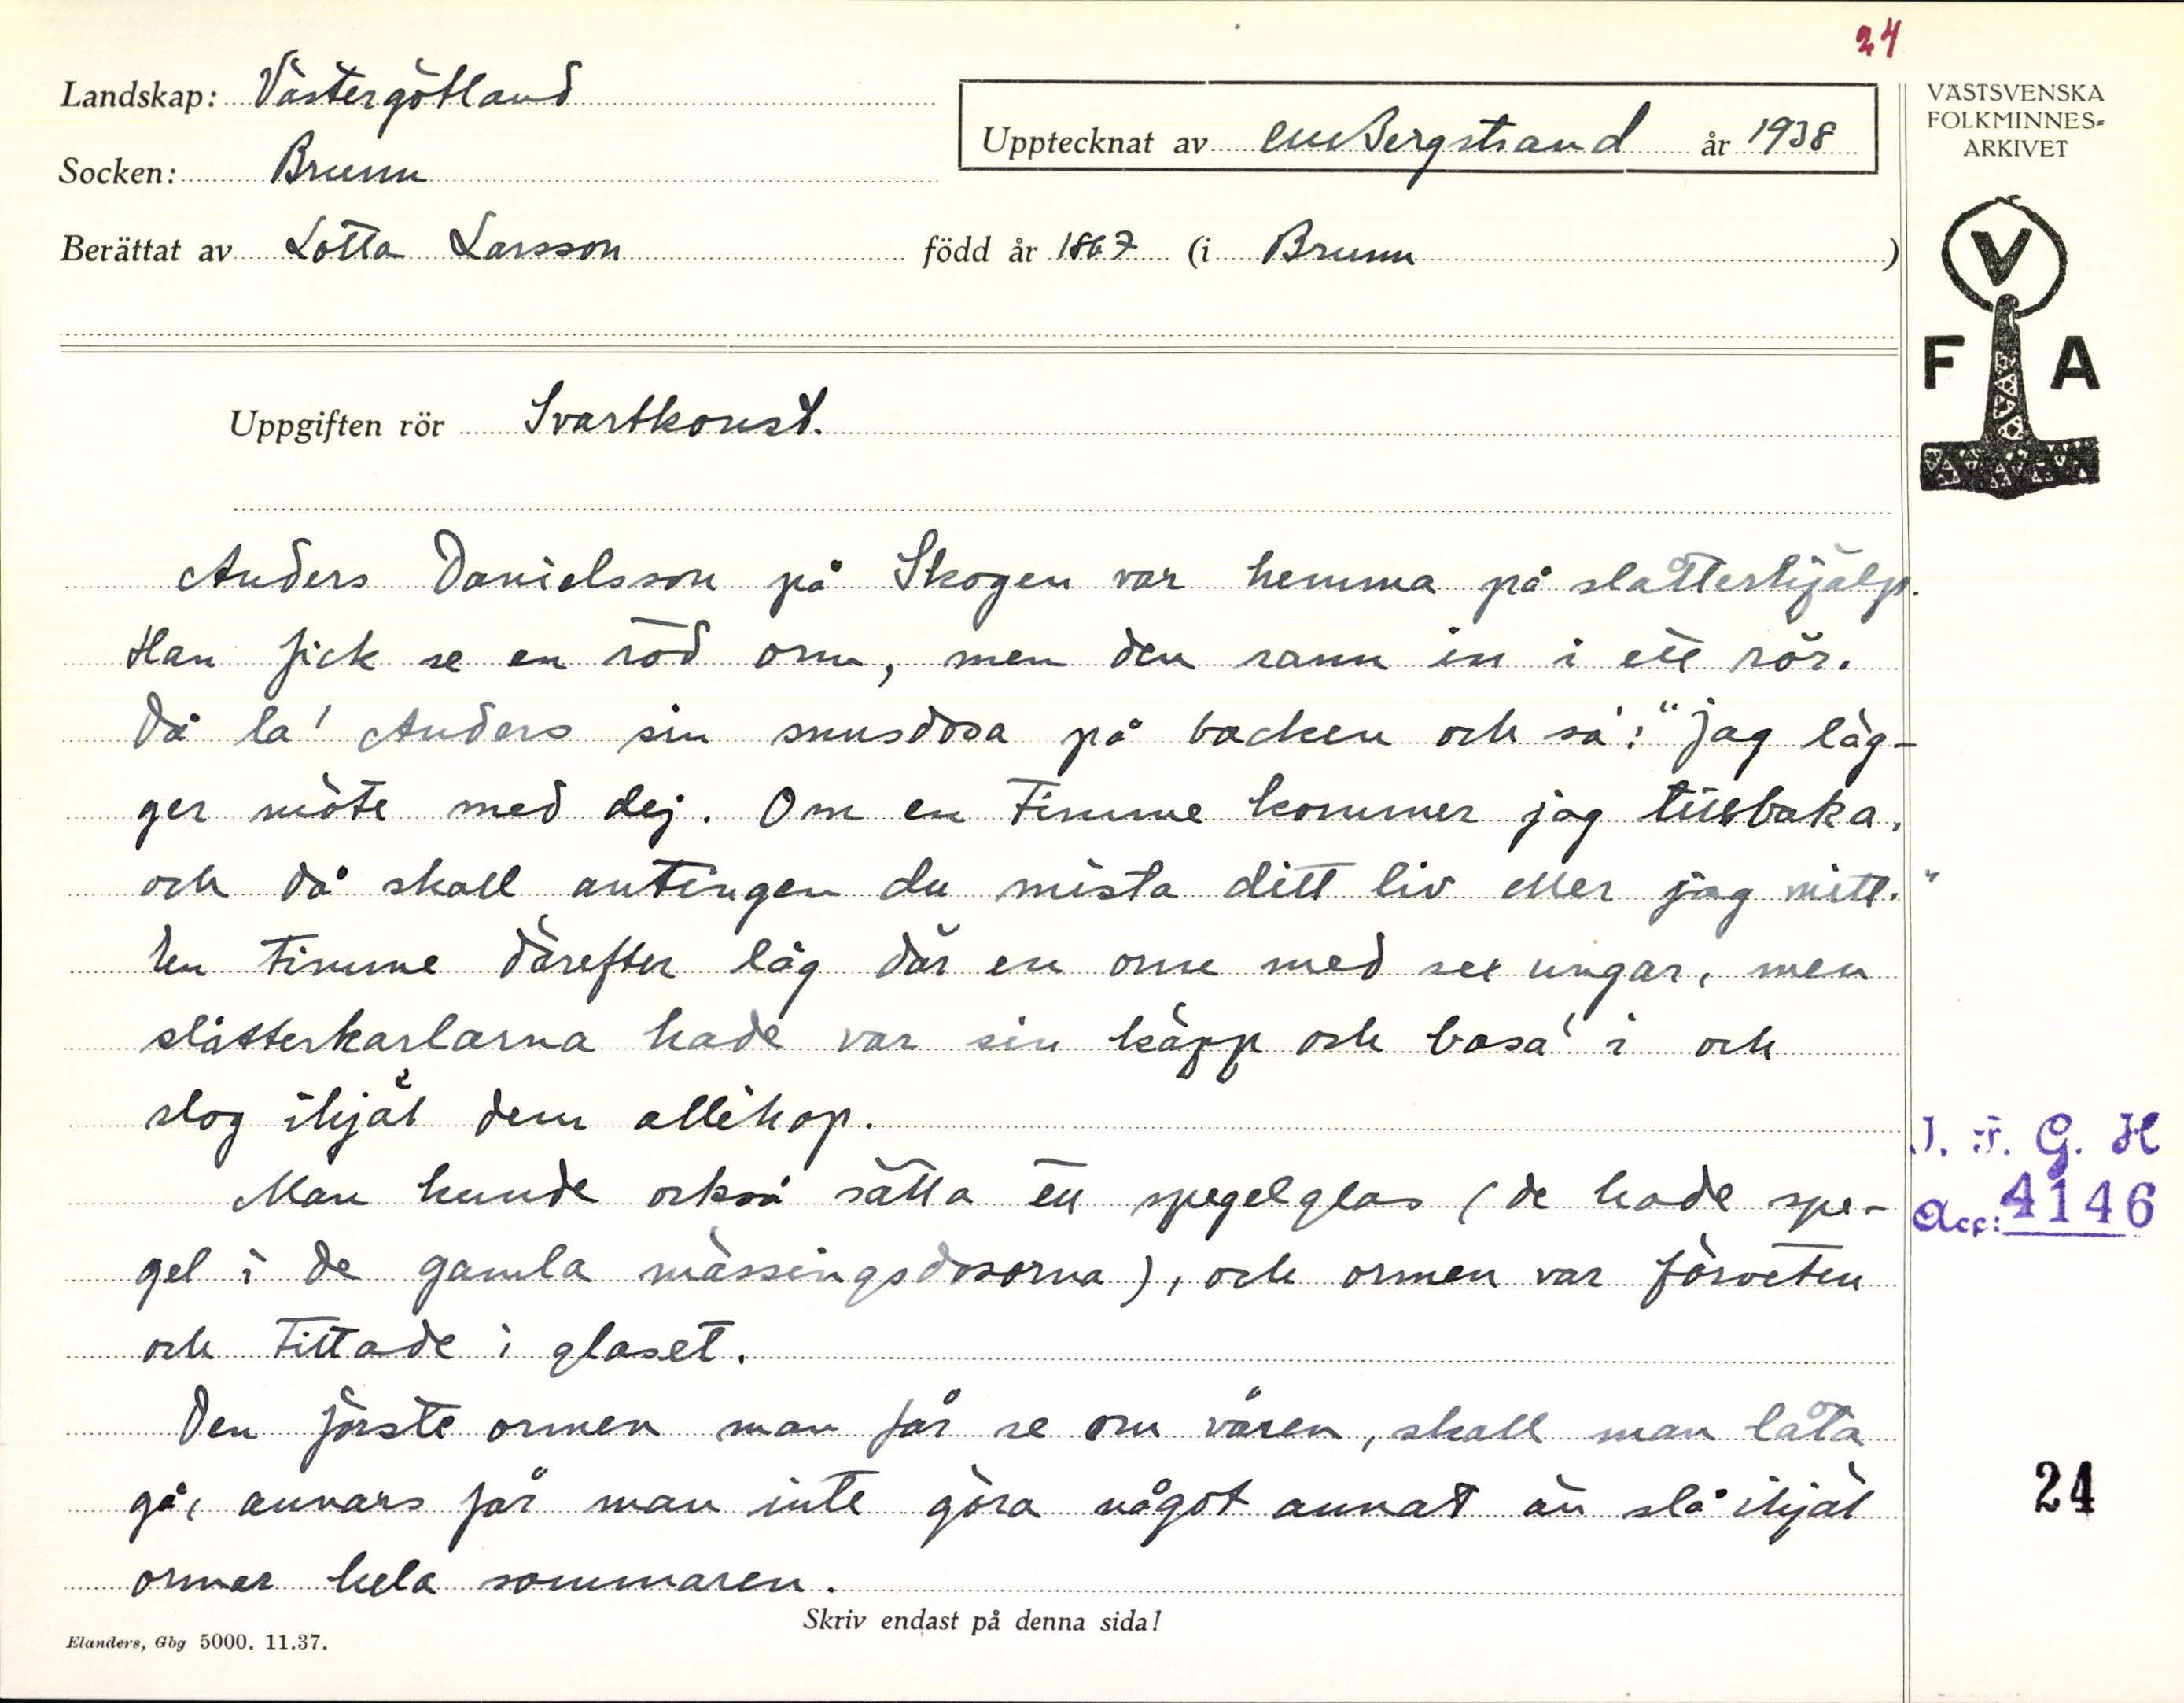 24
Landskap: Västergötland
VÄSTSVENSKA
FOLKMINNES-
ARKIVET
Upptecknat av CMBergstrand år 1938
Socken: Brunn
Berättat av Lotta Larsson född år 1867 (i Brunn )
V
F A
Uppgiften rör Svartkonst.
Anders Danielsson på Skogen var hemma på slåtterhjälp.
Han fick se en röd orm, men den rann in i ett rör.
Då la' Anders sin snusdosa på backen och sa': "jag läg-
ger möte med dej. Om en timme kommer jag tillbaka,
och då skall antingen du mista ditt liv eller jag mitt."
En timme därefter låg där en orm med sex ungar, men
slåtterkarlarna hade var sin käpp och basa' i och
slog ihjäl dem allihop.
Man kunde också sätta ett spegelglas (de hade spe-
gel i de gamla mässingsdosorna), och ormen var förveten
och tittade i glaset.
Den förste ormen man får se om våren, skall man låta
gå, annars får man inte göra något annat än slå ihjäl
ormar hela sommaren.
I. F. G. H
Acc: 4146
24
Skriv endast på denna sida!
Elanders, Gbg 5000. 11.37.